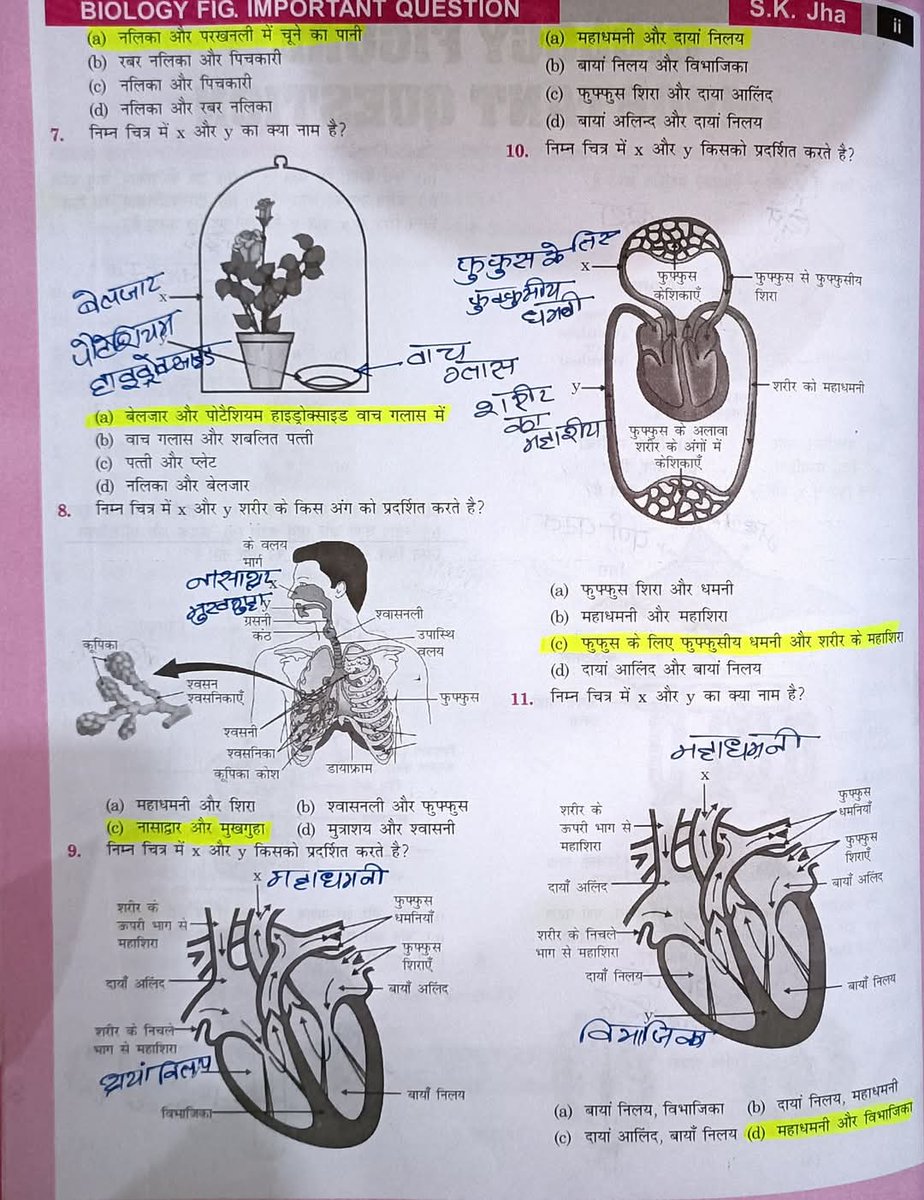 BIOLOGY FIG. IMPORTANT QUESTION
S.K. Jha
ii
(a) नलिका और परखनली में चूने का पानी
(b) रबर नलिका और पिचकारी
(c) नलिका और पिचकारी
(d) नलिका और रबर नलिका
7. निम्न चित्र में x और y का क्या नाम है?
बेलजार
x
पोटेशियम
हाइड्रोक्साइड
वाच
ग्लास
(a) बेलजार और पोटैशियम हाइड्रोक्साइड वाच गलास में
(b) वाच गलास और शबलित पत्ती
(c) पत्ती और प्लेट
(d) नलिका और बेलजार
8. निम्न चित्र में x और y शरीर के किस अंग को प्रदर्शित करते है?
के वलय
मार्ग
नासाद्वार
x
मुखगुहा
y
ग्रसनी
कंठ
श्वासनली
उपास्थि
वलय
कूपिका
श्वसन
श्वसनिकाएँ
फुफ्फुस
श्वसनी
श्वसनिका
कूपिका कोश
डायाफ्राम
(a) महाधमनी और शिरा (b) श्वासनली और फुफ्फुस
(c) नासाद्वार और मुखगुहा (d) मुत्राशय और श्वासनी
9. निम्न चित्र में x और y किसको प्रदर्शित करते है?
x महाधमनी
शरीर के
ऊपरी भाग से
महाशिरा
फुफ्फुस
धमनियाँ
फुफ्फुस
शिराएँ
दायाँ अलिंद
बायाँ अलिंद
शरीर के निचले
भाग से महाशिरा
बायाँ निलय
विभाजिका
(a) महाधमनी और दायां निलय
(b) बायां निलय और विभाजिका
(c) फुफ्फुस शिरा और दाया आलिंद
(d) बायां अलिन्द और दायां निलय
10. निम्न चित्र में x और y किसको प्रदर्शित करते है?
फुफुस के लिए
x
फुफ्फुसीय
धमनी
फुफ्फुस
केशिकाएँ
फुफ्फुस से फुफ्फुसीय
शिरा
y
शरीर
का
शरीर को महाधमनी
फुफ्फुस के अलावा
शरीर के अंगों में
केशिकाएँ
(a) फुफ्फुस शिरा और धमनी
(b) महाधमनी और महाशिरा
(c) फुफुस के लिए फुफ्फुसीय धमनी और शरीर के महाशिरा
(d) दायां आलिंद और बायां निलय
11. निम्न चित्र में x और y का क्या नाम है?
महाधमनी
x
शरीर के
ऊपरी भाग से
महाशिरा
फुफ्फुस
धमनियाँ
फुफ्फुस
शिराएँ
दायाँ अलिंद
बायाँ अलिंद
शरीर के निचले
भाग से महाशिरा
दायाँ निलय
बायाँ निलय
y
विभाजिका
(a) बायां निलय, विभाजिका (b) दायां निलय, महाधमनी
(c) दायां आलिंद, बायाँ निलय (d) महाधमनी और विभाजिका